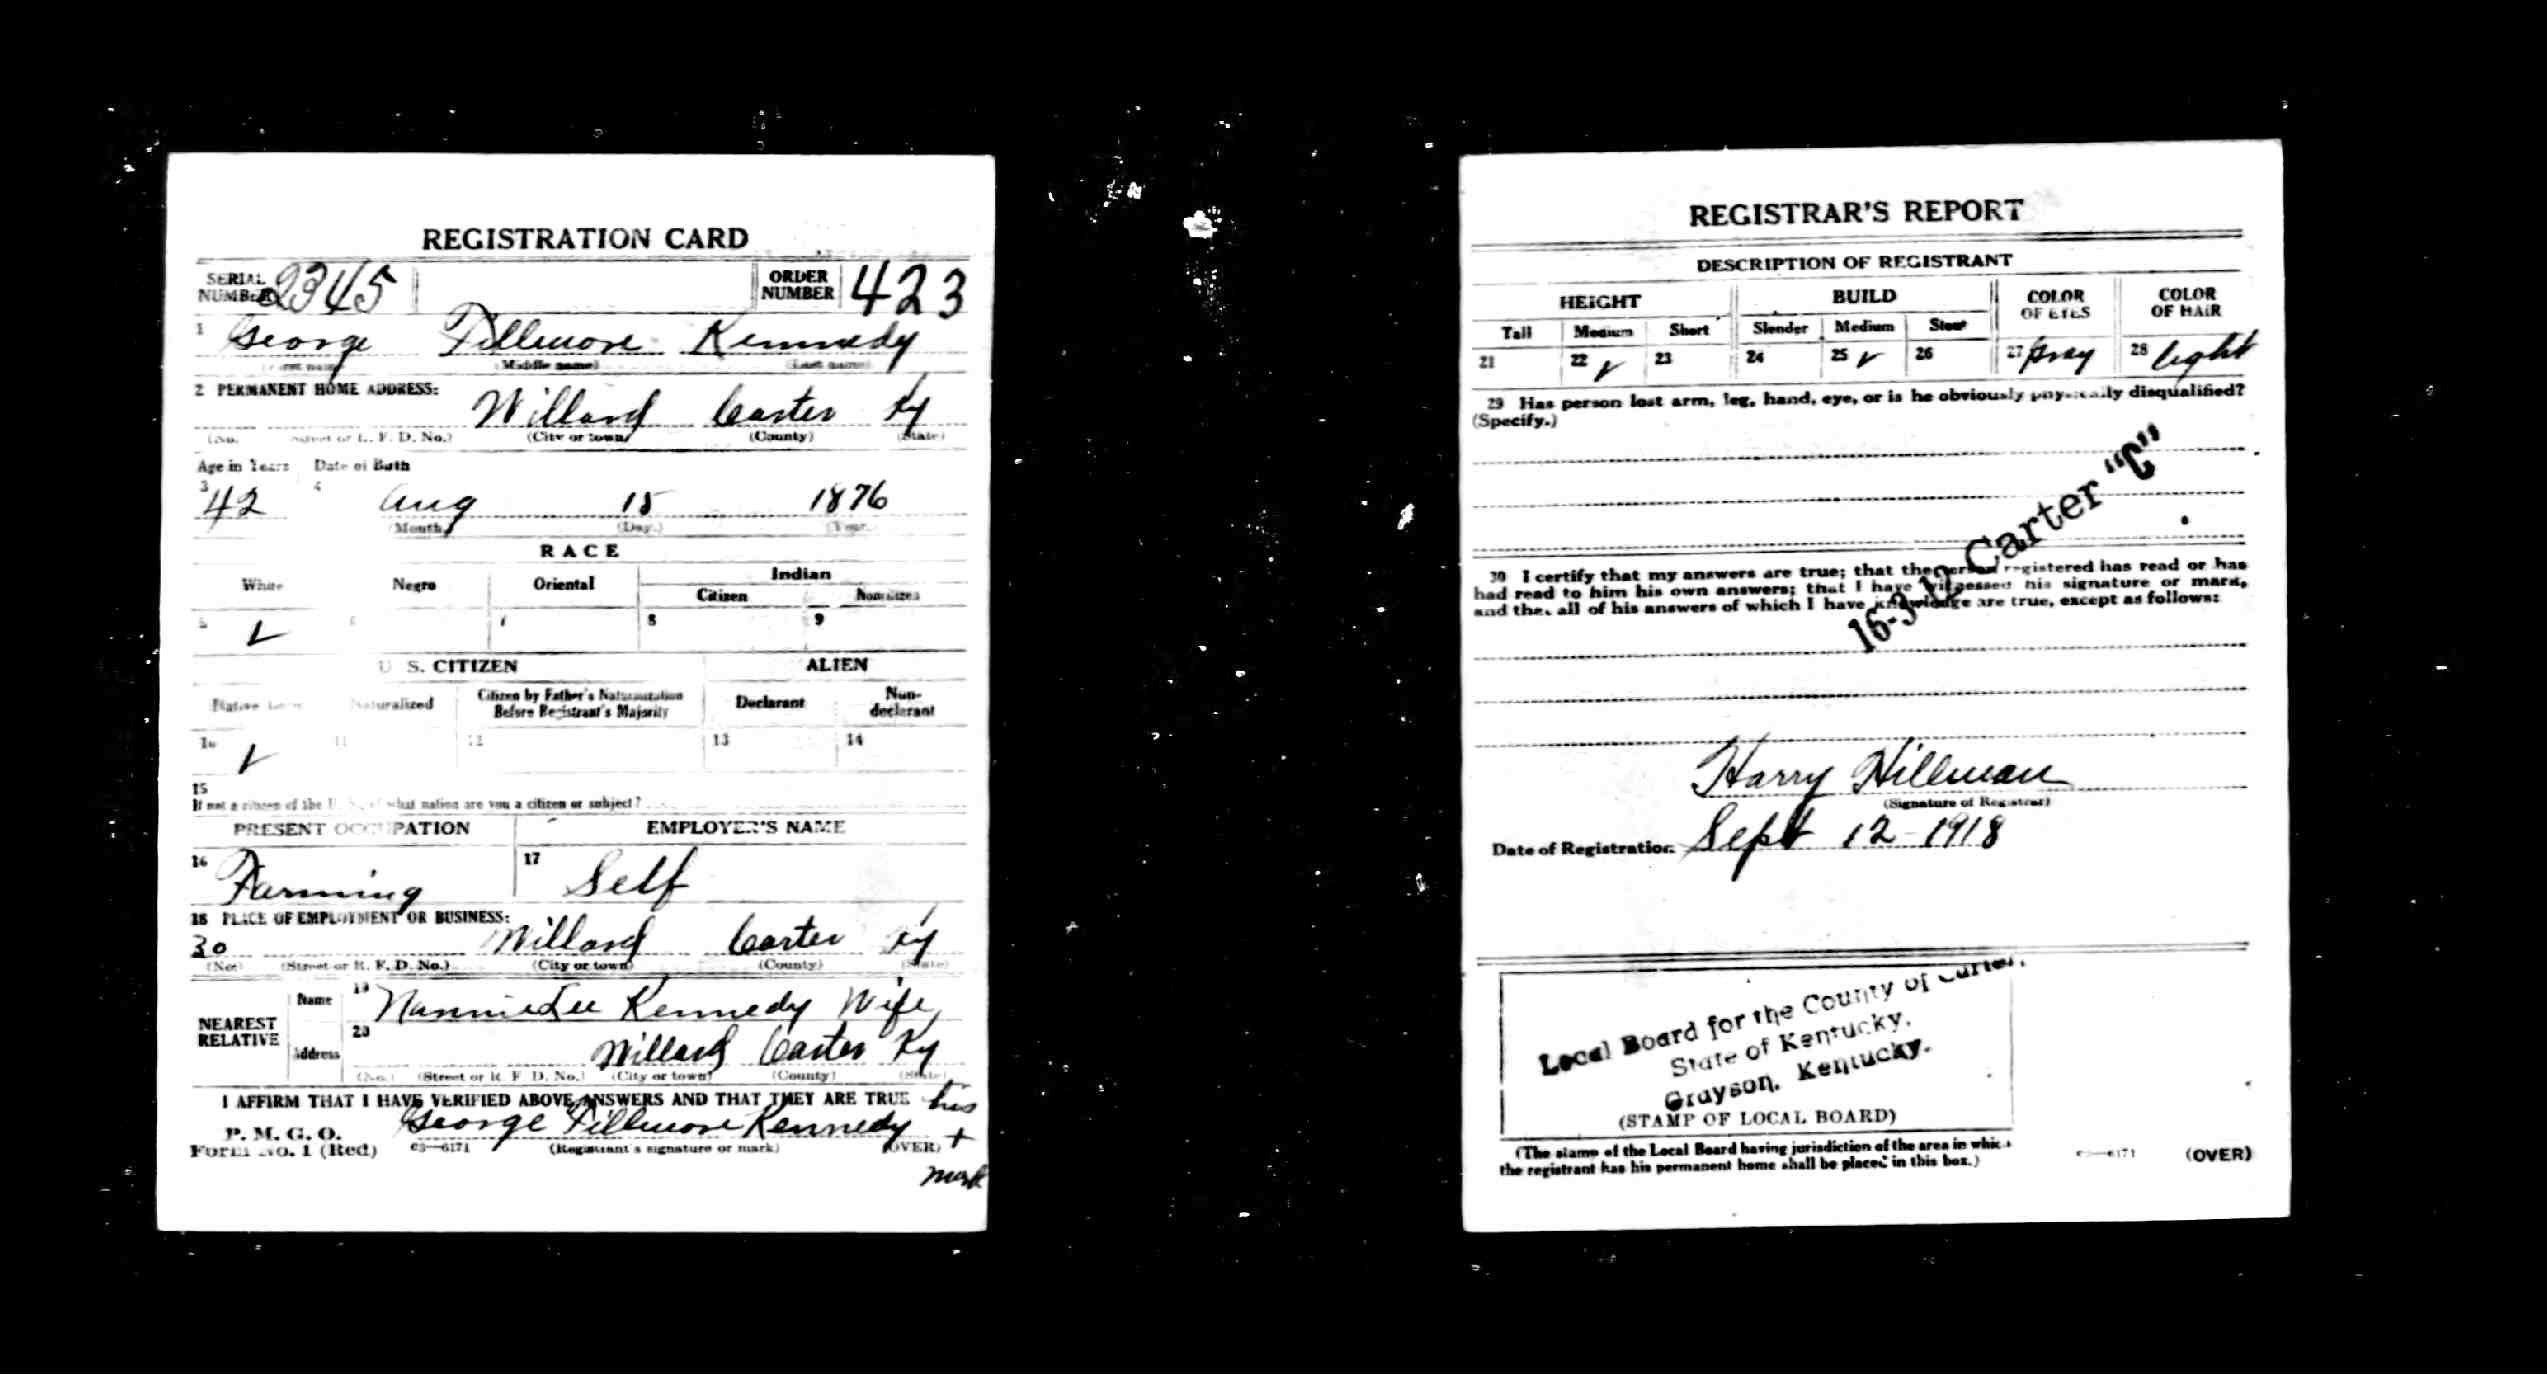 REGISTRATION CARD
SERIAL NUMBER 2345 ORDER NUMBER 423
1 George Fillmore Kennedy
(Middle name) (Last name)
2 PERMANENT HOME ADDRESS:
Willard Carter Ky
(No. Street or R. F. D. No.) (City or town) (County) (State)
Age in Years Date of Birth
3 42 4 Aug 15 1876
(Month) (Day.) (Year.)
RACE
White Negro Oriental Indian
Citizen Noncitizen
5 ✓ 6 7 8 9
U. S. CITIZEN ALIEN
Native Born Naturalized Citizen by Father's Naturalization Before Registrant's Majority Declarant Non-declarant
10 ✓ 11 12 13 14
15
If not a citizen of the U. S., of what nation are you a citizen or subject?
PRESENT OCCUPATION EMPLOYER'S NAME
16 Farming 17 Self
18 PLACE OF EMPLOYMENT OR BUSINESS:
30 Willard Carter Ky
(No.) (Street or R. F. D. No.) (City or town) (County) (State)
NEAREST RELATIVE Name 19 Nannie Lee Kennedy Wife
Address 20 Willard Carter Ky
(No.) (Street or R. F. D. No.) (City or town) (County) (State)
I AFFIRM THAT I HAVE VERIFIED ABOVE ANSWERS AND THAT THEY ARE TRUE his
George Fillmore Kennedy +
P. M. G. O.
Form No. 1 (Red) 03—6171 (Registrant's signature or mark) (OVER)
mark
REGISTRAR'S REPORT
DESCRIPTION OF REGISTRANT
HEIGHT BUILD COLOR OF EYES COLOR OF HAIR
Tall Medium Short Slender Medium Stout
21 22 ✓ 23 24 25 ✓ 26 27 Gray 28 light
29 Has person lost arm, leg, hand, eye, or is he obviously physically disqualified?
(Specify.)
16-3-12 Carter "C"
30 I certify that my answers are true; that the person registered has read or has
had read to him his own answers; that I have witnessed his signature or mark,
and that all of his answers of which I have knowledge are true, except as follows:
Harry Hillman
(Signature of Registrar)
Date of Registration Sept 12-1918
Local Board for the County of Carter,
State of Kentucky.
Grayson, Kentucky.
(STAMP OF LOCAL BOARD)
(The stamp of the Local Board having jurisdiction of the area in which
the registrant has his permanent home shall be placed in this box.)
03—6171 (OVER)